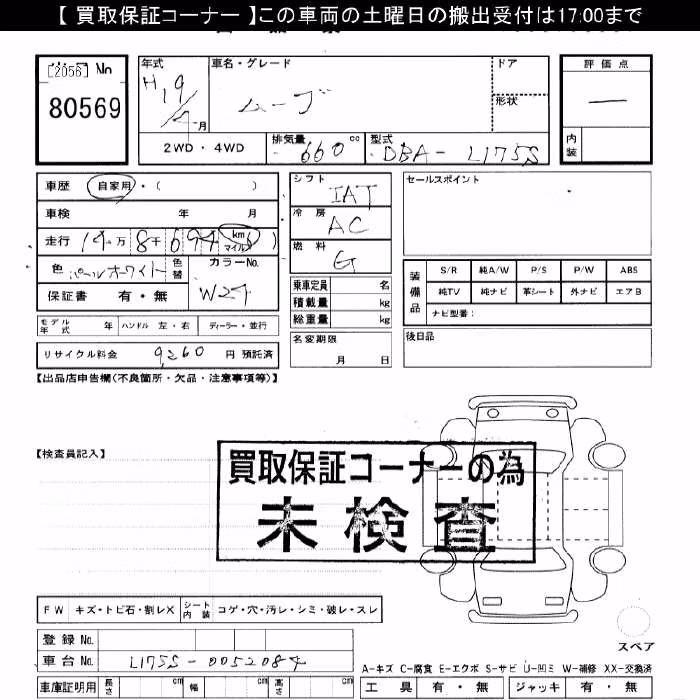 【 買取保証コーナー 】この車両の土曜日の搬出受付は17:00まで
[2056] No
80569
年式 車名・グレード ドア 評価点
H19/4月 ムーブ 形状 —
2WD・4WD 排気量 660 cc 型式 DBA- L175S 内装
車歴 自家用・( )
車検 年 月
走行 14万8千694 km マイル )
色 パールホワイト 色替 カラーNo. W24
保証書 有・無
シフト IAT
冷房 AC
燃料 G
乗車定員 名
積載量 kg
総重量 kg
セールスポイント
装備品 S/R 純A/W P/S P/W ABS
純TV 純ナビ 革シート 外ナビ エアB
ナビ型番:
モデル年式 年 ハンドル 左・右 ディーラー・並行
名変期限 月 日
後日品
リサイクル料金 9,260 円 預託済
【出品店申告欄(不良箇所・欠品・注意事項等)】
【検査員記入】
買取保証コーナーの為
未検査
FW キズ・トビ石・割レX シート内装 コゲ・穴・汚レ・シミ・破レ・スレ
スペア
登録 No.
車台 No. L175S-0052084
A-キズ C-腐食 E-エクボ S-サビ U-凹ミ W-補修 XX-交換済
車庫証明用 長さ cm 幅 cm 高さ cm 工具 有・無 ジャッキ 有・無